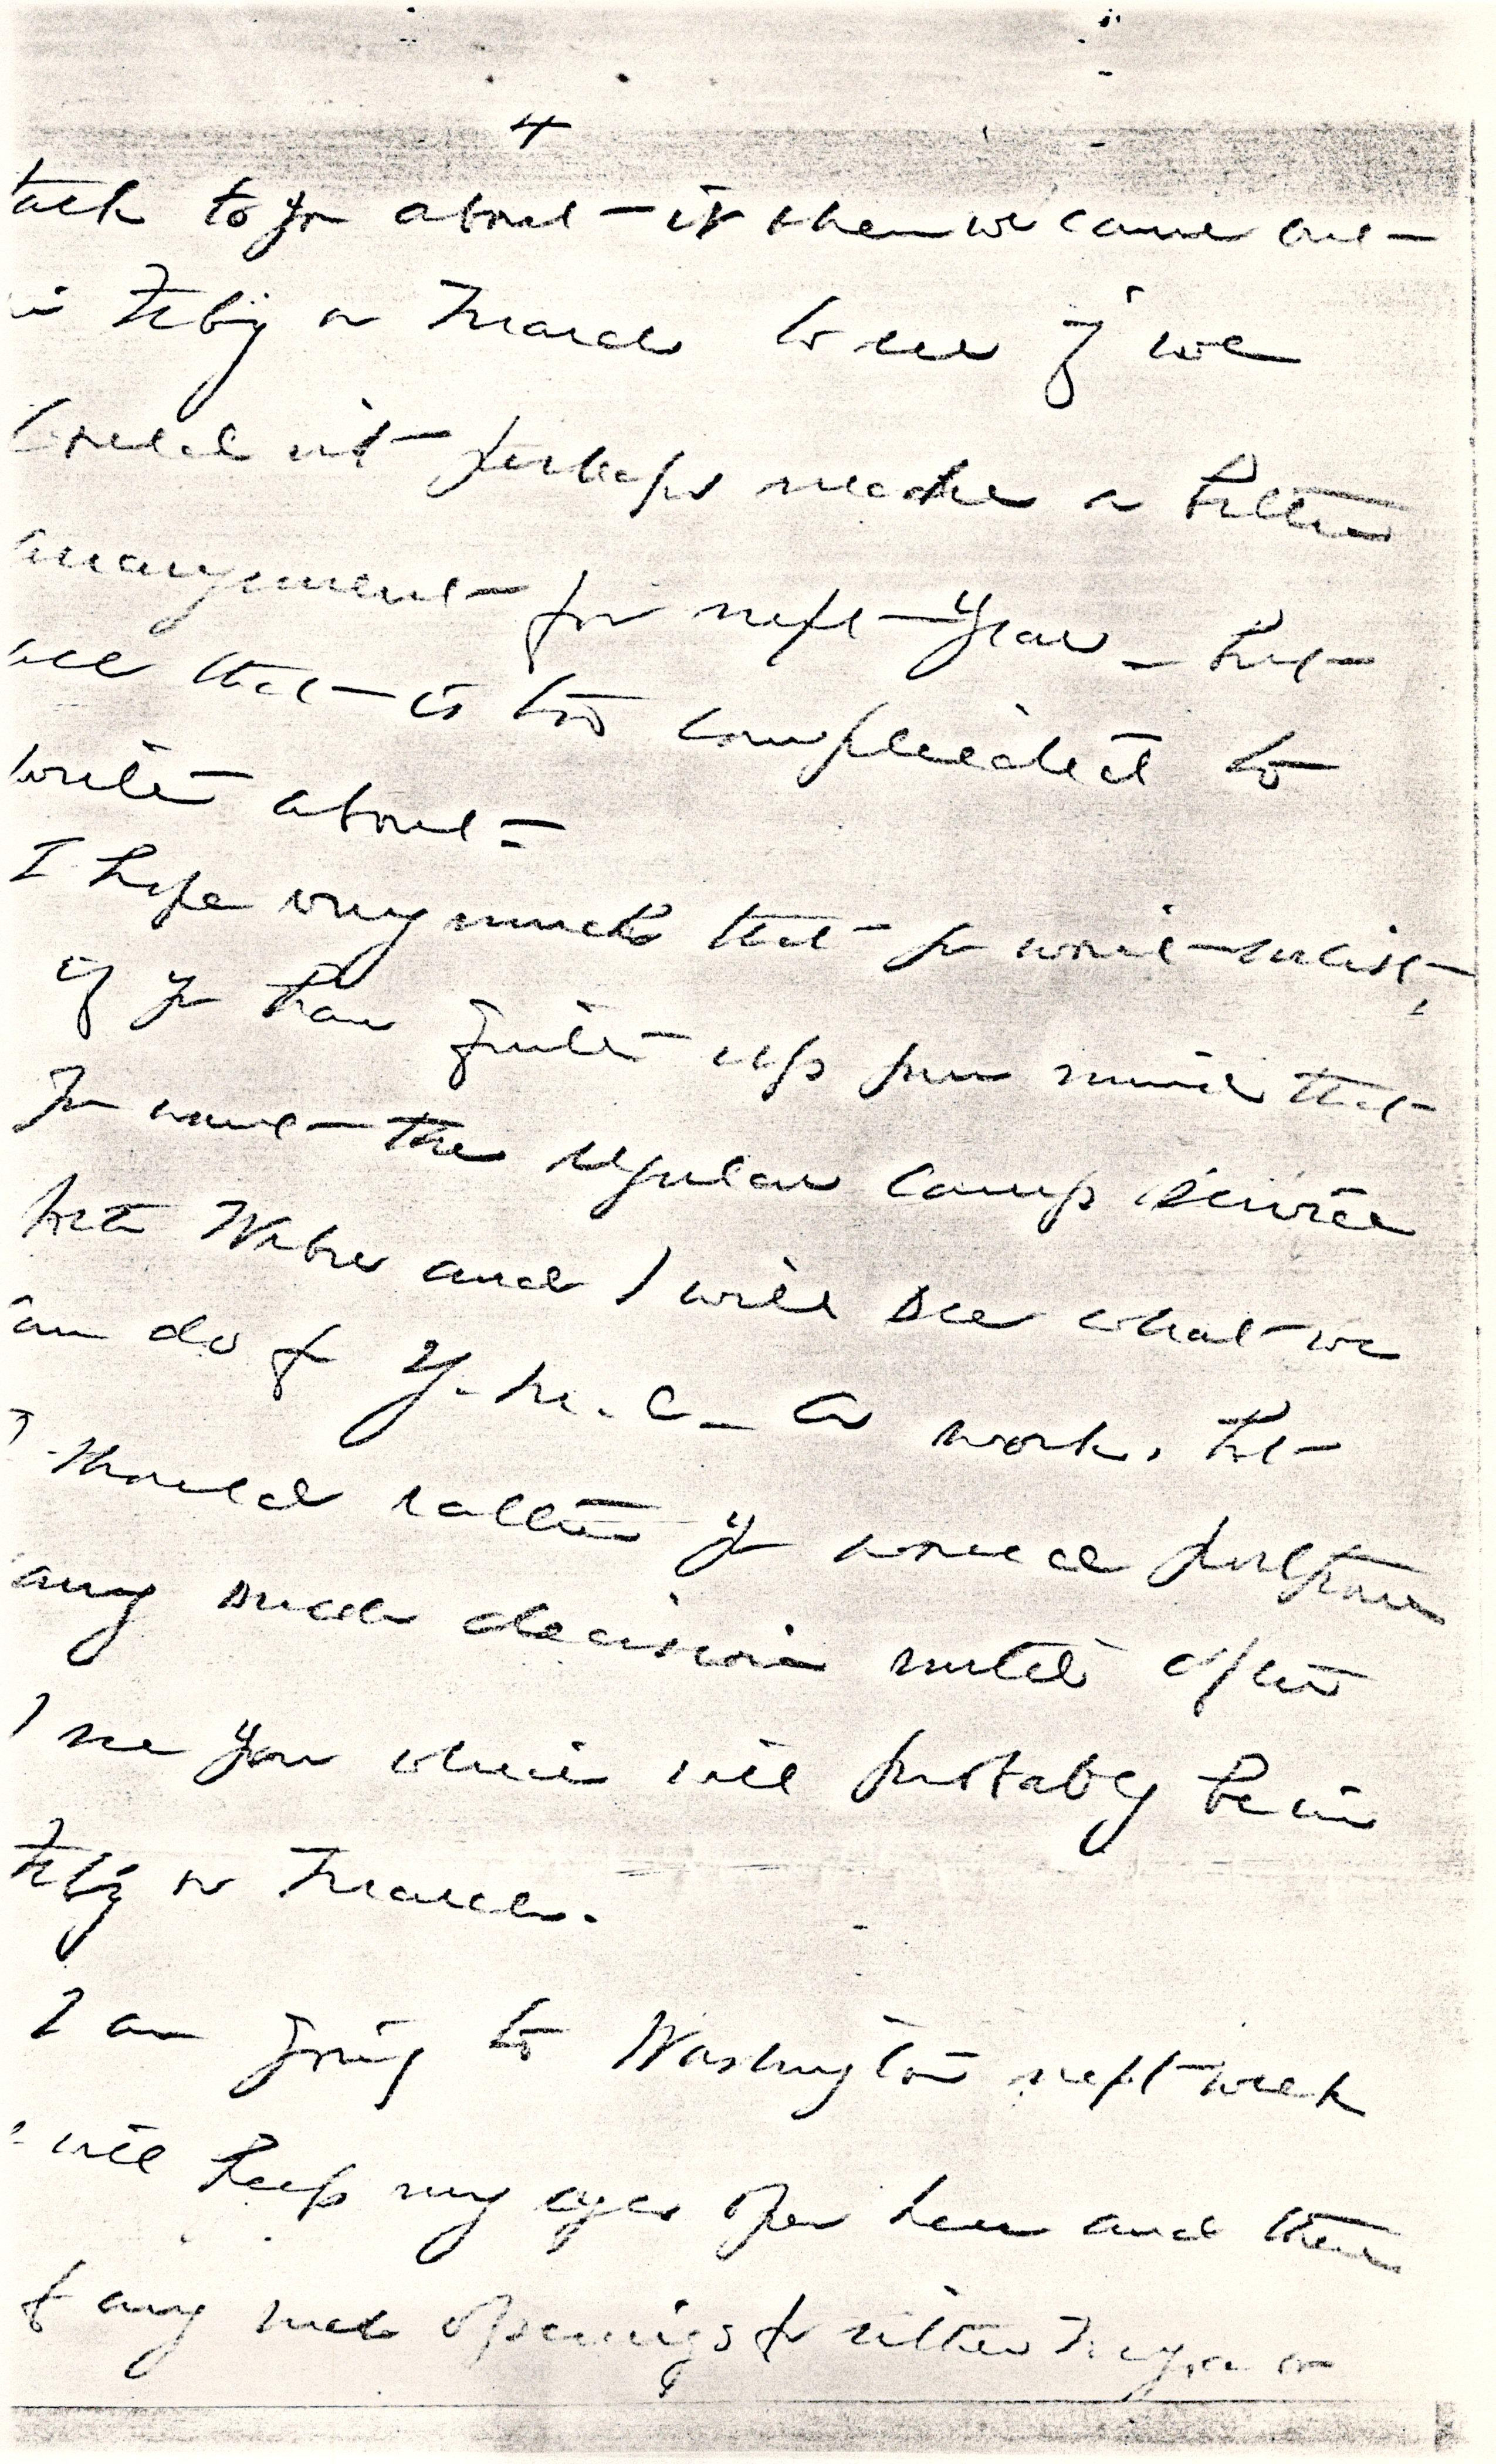 4
talk to you about it when we come out
in Feby or March to see if we
could not perhaps make a better
arrangement for next year – but
all that is too complicated to
write about =
I hope very much that you wont enlist,
if you have quite up your mind that
You want the regular camp service
both and I will see what we
can do for Y. M. C. A work. But
I should rather you would postpone
any such decision until after
I see you which will probably be in
Feby or March.
I am going to Washington next week
will keep my eyes open here and there
for any such openings for either or